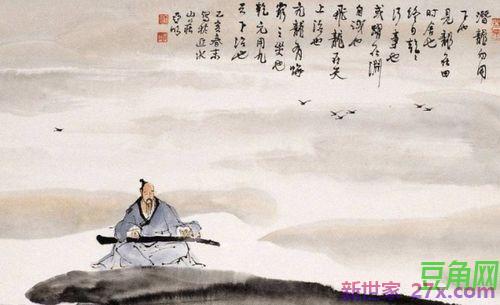 潛龍勿用
下也
見龍在田
時舍也
終日乾乾
行事也
或躍在淵
自試也
飛龍在天
上治也
亢龍有悔
窮之災也
乾元用九
天下治也
乙亥春末
寫於近水
山莊
亞明
豆角网
新世家 27x.com